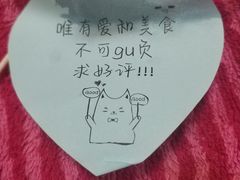 唯有爱和美食
不可gu负
求好评!!!
Good
Good